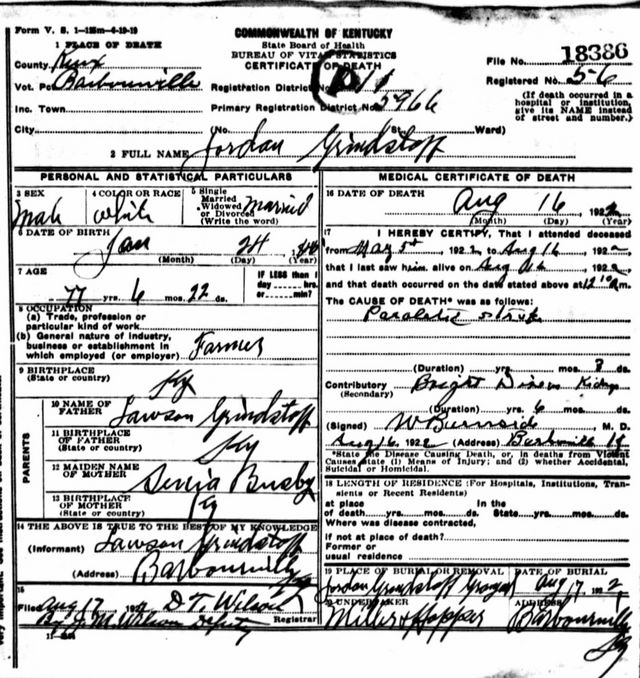 Form V. S. 1-1
COMMONWEALTH OF KENTUCKY
State Board of Health
BUREAU OF VITAL STATISTICS
CERTIFICATE OF DEATH
1 PLACE OF DEATH
County Knox
Vot. Pct. Barbourville
Inc. Town
City
(No. St. Ward)
Registration District No.
Primary Registration District No. 5966
File No. 18386
Registered No. 56
(If death occurred in a
hospital or institution,
give its NAME instead
of street and number.)
2 FULL NAME Jordan Grindstoff
PERSONAL AND STATISTICAL PARTICULARS
3 SEX
Male
4 COLOR OR RACE
White
5 Single
Married
Widowed
or Divorced
(Write the word)
Married
6 DATE OF BIRTH
Jan 24
(Month) (Day) (Year)
7 AGE
77 yrs. 6 mos. 22 ds.
IF LESS than 1
day hrs.
or min?
8 OCCUPATION
(a) Trade, profession or
particular kind of work
(b) General nature of industry,
business or establishment in
which employed (or employer) Farmer
9 BIRTHPLACE
(State or country)
Ky
PARENTS
10 NAME OF
FATHER Lawson Grindstoff
11 BIRTHPLACE
OF FATHER
(State or country) Ky
12 MAIDEN NAME
OF MOTHER Busby
13 BIRTHPLACE
OF MOTHER
(State or country) Ky
14 THE ABOVE IS TRUE TO THE BEST OF MY KNOWLEDGE
(Informant) Lawson Grindstoff
(Address) Barbourville Ky
15
Filed Aug 17 192 D T. Wilson
Registrar
By J M Wilson Deputy
MEDICAL CERTIFICATE OF DEATH
16 DATE OF DEATH
Aug 16 192
(Month) (Day) (Year)
17 I HEREBY CERTIFY, That I attended deceased
from May 5th 192 2 to Aug 16 192 2
that I last saw him alive on Aug 192 2
and that death occurred on the date stated above at 12
The CAUSE OF DEATH* was as follows:
Stroke
(Duration) yrs. mos. ds.
Contributory Bright Kidney
(Secondary)
(Duration) yrs. 6 mos. ds.
(Signed) W Burnside M. D.
Aug 16 192 2 (Address) Barbourville Ky
*State the Disease Causing Death, or, in deaths from Violent
Causes state (1) Means of Injury; and (2) whether Accidental,
Suicidal or Homicidal.
18 LENGTH OF RESIDENCE (For Hospitals, Institutions, Tran-
sients or Recent Residents)
at place In the
of death yrs. mos. ds. State yrs. mos. ds.
Where was disease contracted,
if not at place of death?
Former or
usual residence
19 PLACE OF BURIAL OR REMOVAL
Jordan Grindstoff
DATE OF BURIAL
Aug 17 192 2
20 UNDERTAKER
Miller & Hopper
ADDRESS
Barbourville
Ky